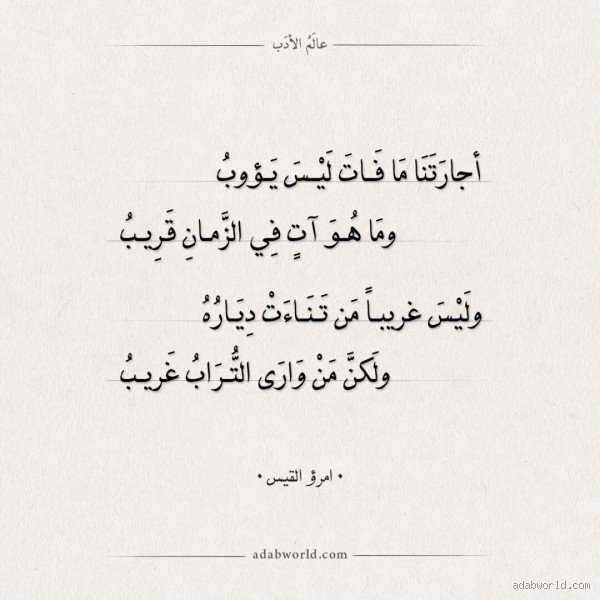 عالَمُ الأدَب
أجارَتَنَا مَا فَاتَ لَيْسَ يَؤوبُ
ومَا هُوَ آتٍ فِي الزَّمانِ قَرِيبُ
ولَيْسَ غريباً مَن تَنَاءَتْ دِيَارُهُ
ولَكنَّ مَنْ وَارَى التُّرَابُ غَريبُ
• امرؤ القيس •
adabworld.com
adabworld.com